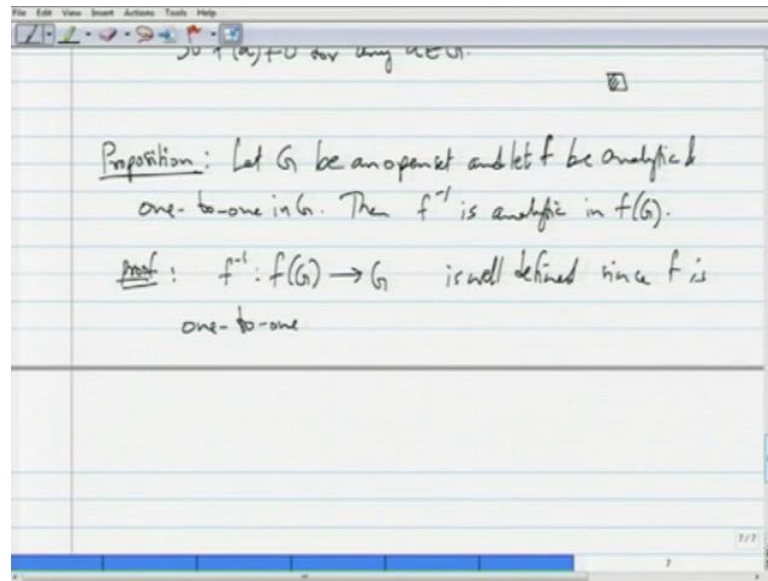 File Edit View Insert Actions Tools Help
So f'(a) ≠ 0 for any a ∈ G.
Proposition: Let G be an open set and let f be analytic &
one-to-one in G. Then f⁻¹ is analytic in f(G).
Proof: f⁻¹: f(G) → G is well defined since f is
one-to-one
7/7
7